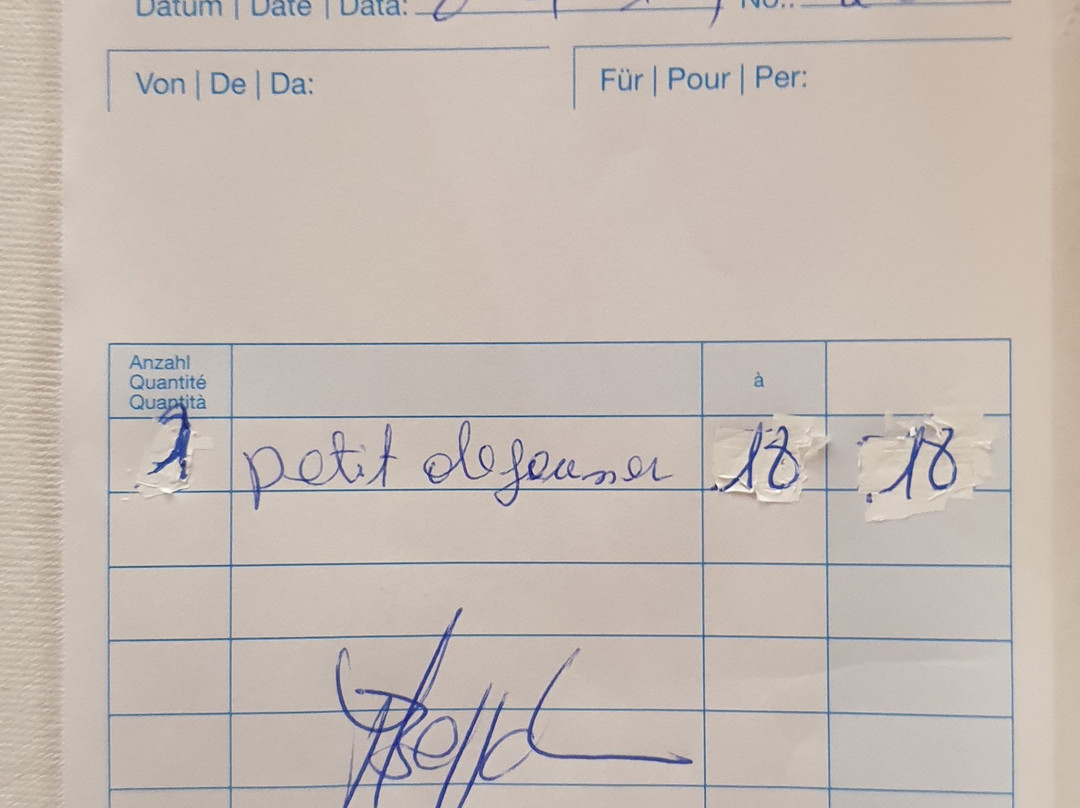 Datum | Date | Data: No.:
Von | De | Da: Für | Pour | Per:
Anzahl
Quantité
Quantità
à
1 petit dejeuner .18 .18